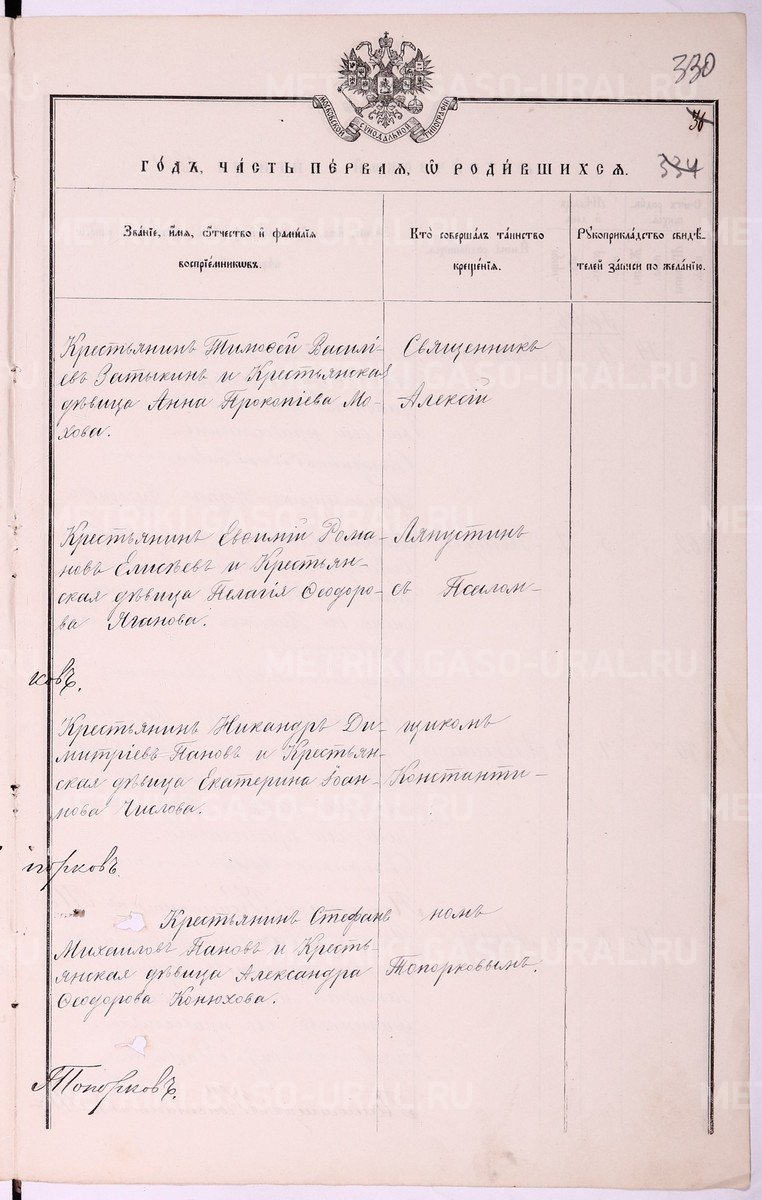 330
36
334
МОСКОВСКОЙ СѴНОДАЛЬНОЙ ТИПОГРАФІИ
ГО́ДЪ, ЧА́СТЬ ПЕ́РВАЯ, Ѽ РОДИ́ВШИХСЯ.
Зва́нїе, и҆́мя, ѻ҆́тчество и҆ фами́лїя
воспрїе́мникѡвъ.
Кто̀ соверша́лъ та́инство
креще́нїя.
Рꙋкоприкла́дство свидѣ́-
телей за́писи по жела́нїю.
Крестьянинъ Тимоѳей Василі-
евъ Затыкинъ и Крестьянская
дѣвица Анна Прокопіева Мо-
хова.
Священникъ
Алексій
Крестьянинъ Евѳимій Рома-
новъ Елисѣевъ и Крестьян-
ская дѣвица Пелагія Ѳеодоро-
ва Яганова.
Ляпустинъ
съ Псалом-
ковъ.
Крестьянинъ Никандръ Ди-
митріевъ Пановъ и Крестьян-
ская дѣвица Екатерина Іоан-
нова Числова.
щикомъ
Константи-
порковъ.
Крестьянинъ Стефанъ
Михаиловъ Пановъ и Кресть-
янская дѣвица Александра
Ѳеодорова Конюхова.
номъ
Топорковымъ.
Топорковъ.
METRIKI.GASO-URAL.RU